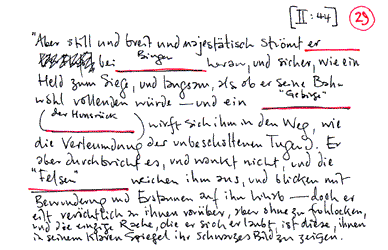 [II: 44] 29
"Aber still und breit und majestätisch strömt er
bei Bingen heran, und sicher, wie ein
Held zum Siege, und langsam, als ob er seine Bahn
wohl vollenden würde – und ein "Gebirge"
(der Hunsrück) wirft sich ihm in den Weg, wie
die Verleumdung der unbescholtenen Tugend. Er
aber durchbricht es, und wankt nicht, und die
"Felsen" weichen ihm aus, und blicken mit
Bewunderung und Erstaunen auf ihn hinab – doch er
eilt verächtlich zu ihnen vorüber, aber ohne zu frohlocken,
und die einzige Rache, die er sich erlaubt ist diese, ihnen
in seinem klaren Spiegel ihr schwarzes Bild zu zeigen.